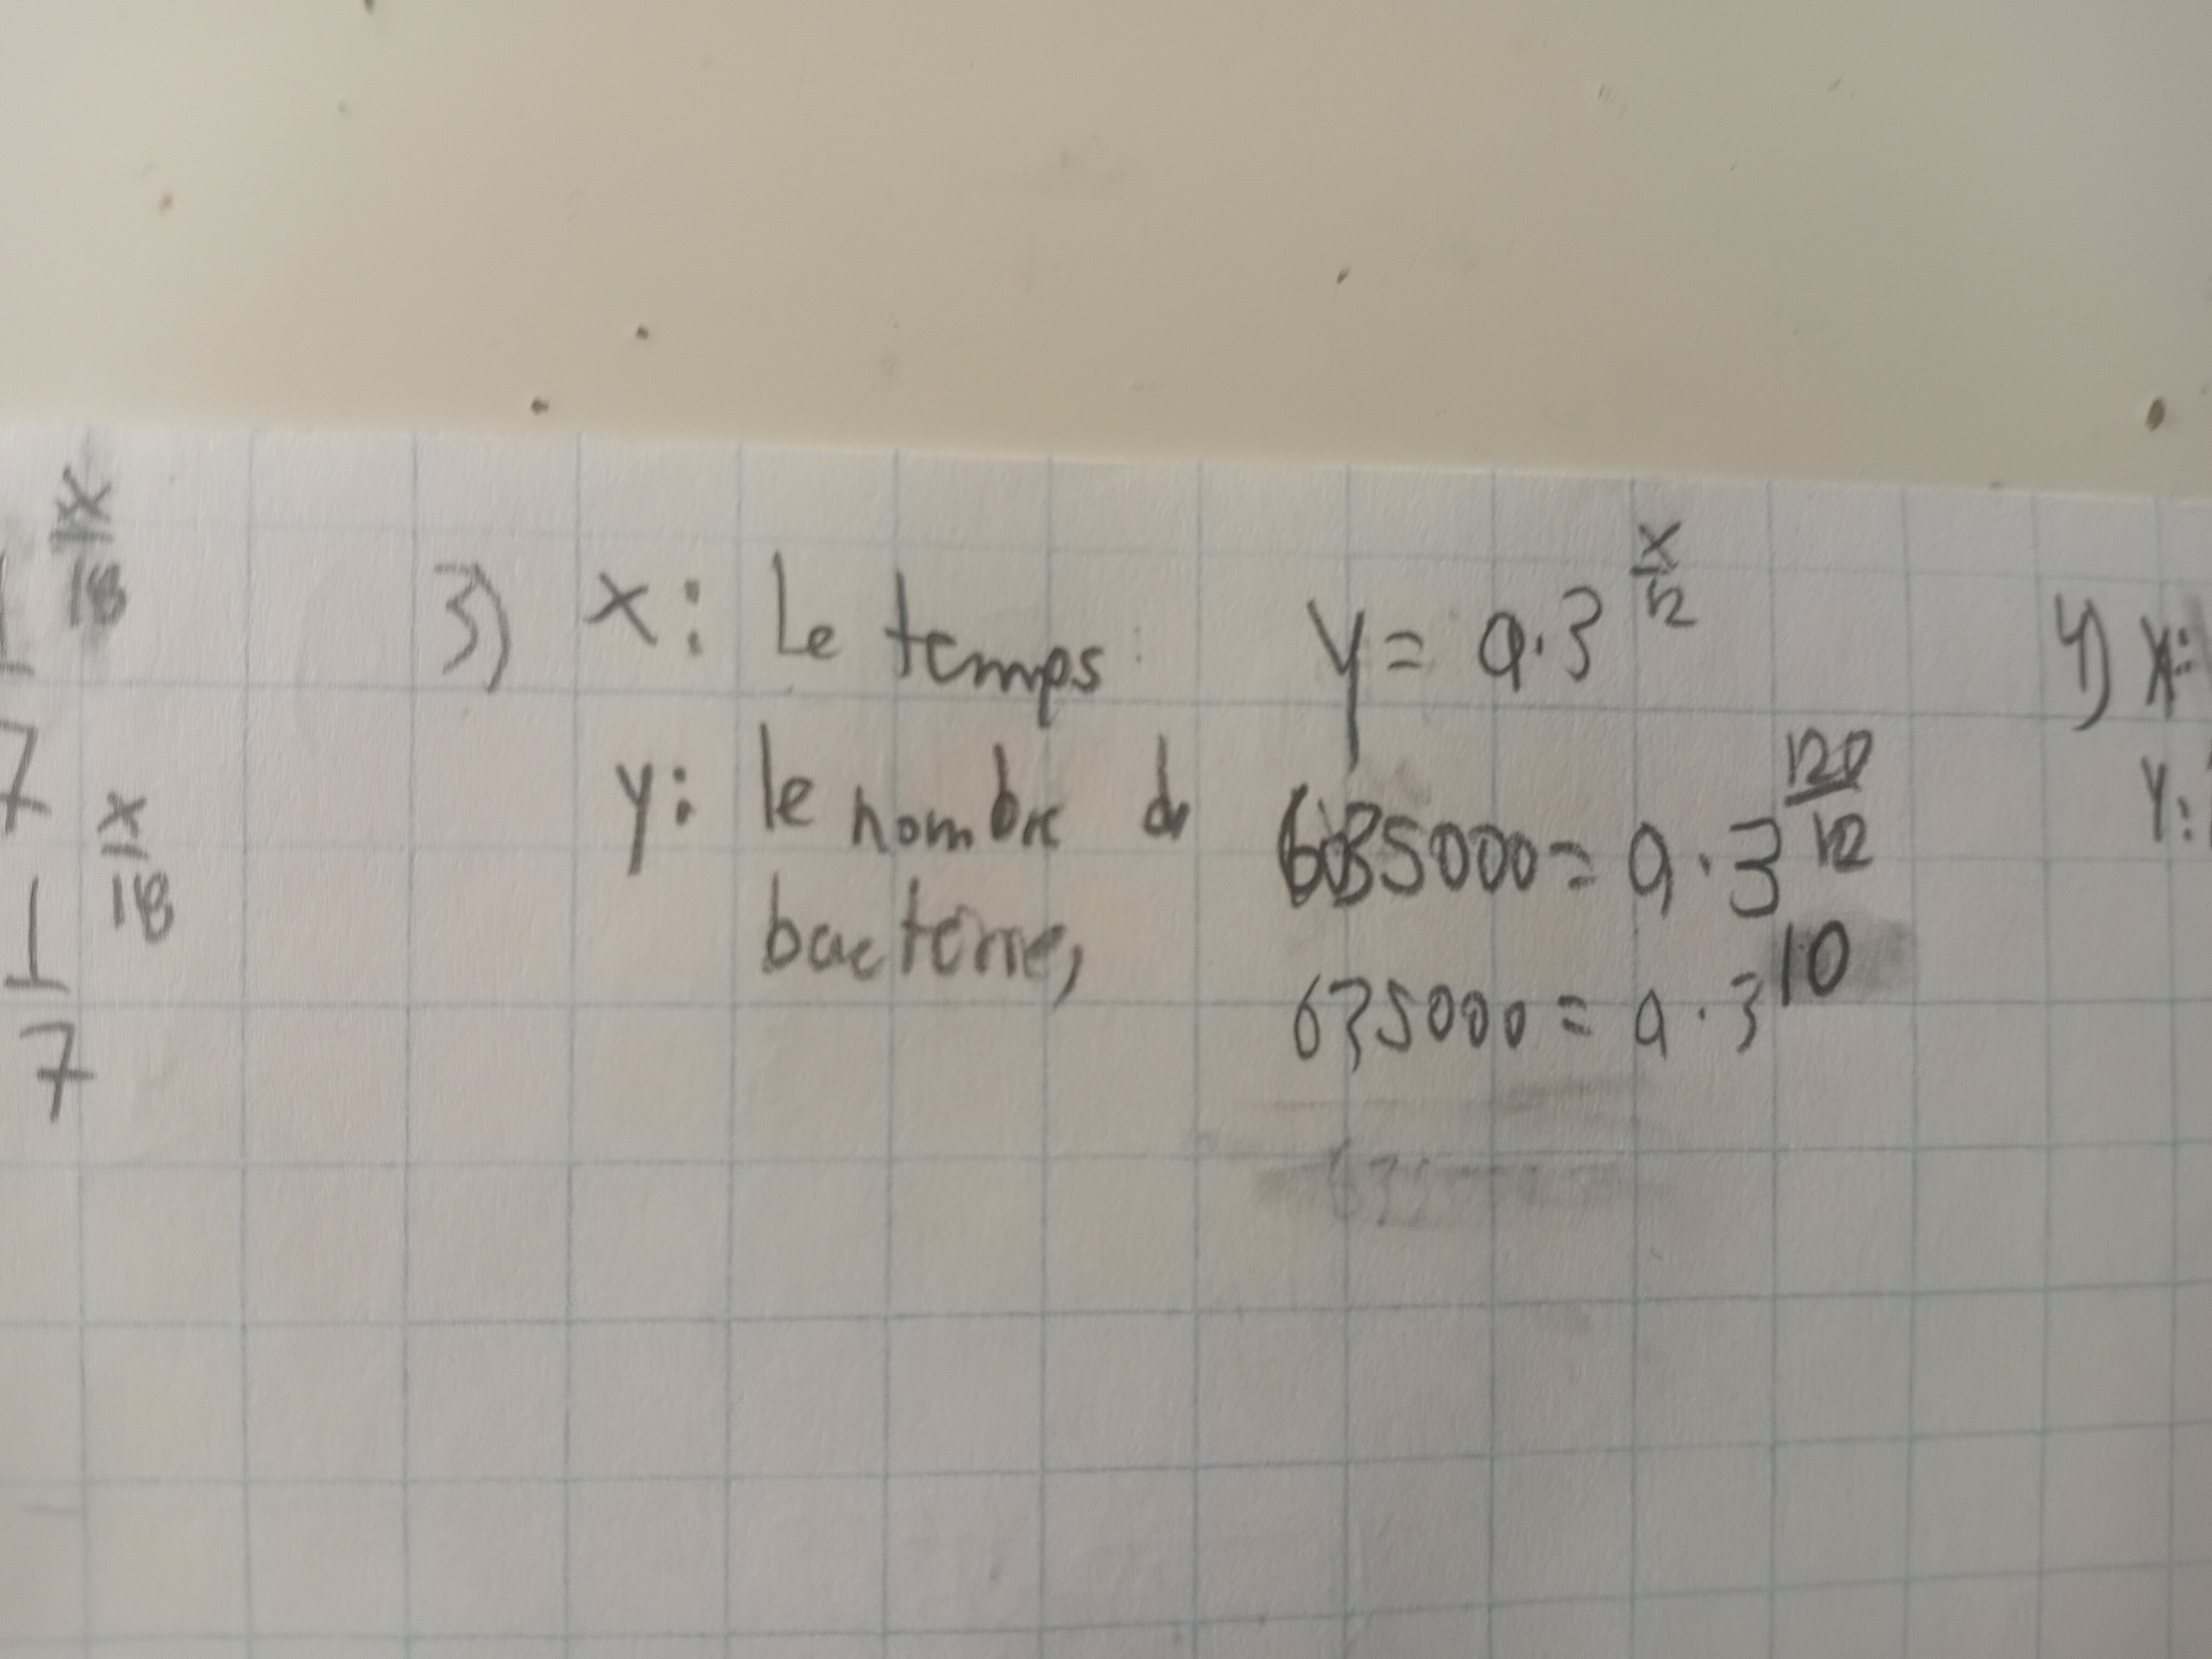 x/18
7
x/18
1
7
3) x: Le temps
y: le nombre de
bacterie,
y = a·3^(x/12)
635000 = a·3^(120/12)
635000 = a·3^10
4) x:
y: